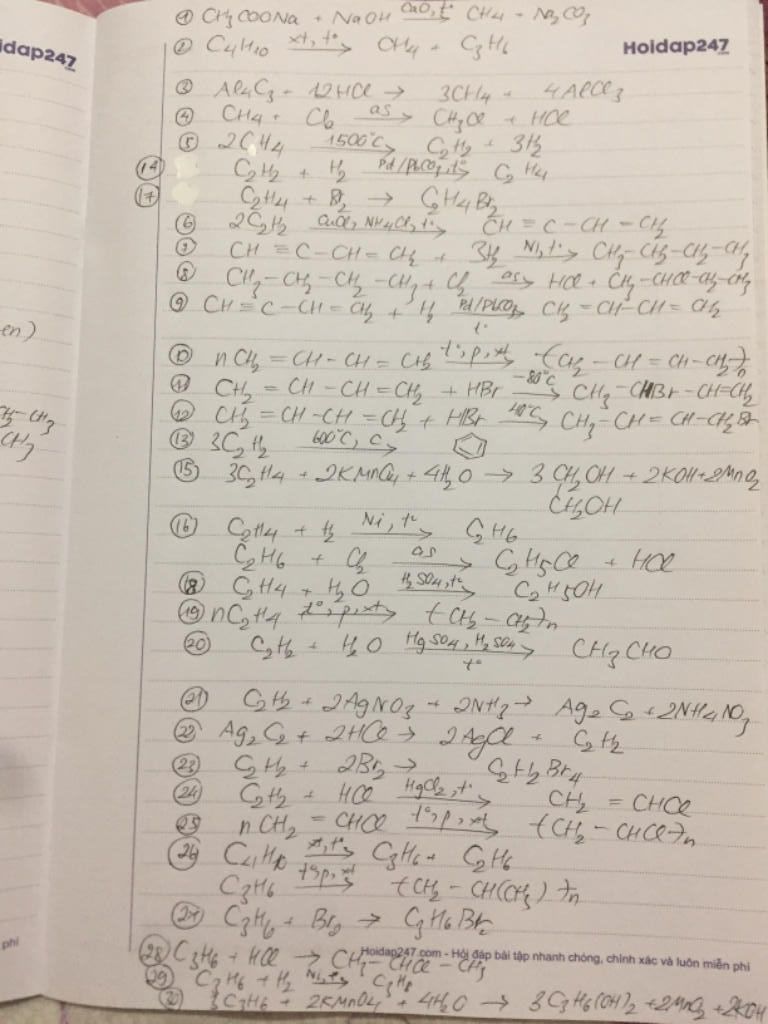 ① CH3COONa + NaOH CaO, t° → CH4 + Na2CO3
② C4H10 xt, t° → CH4 + C3H6
oidap247
Hoidap247
③ Al4C3 + 12HCl → 3CH4 + 4AlCl3
④ CH4 + Cl2 as → CH3Cl + HCl
⑤ 2CH4 1500°C → C2H2 + 3H2
⑭ C2H2 + H2 Pd/PbCO3, t° → C2H4
⑰ C2H4 + Br2 → C2H4Br2
⑥ 2C2H2 CuCl, NH4Cl, t° → CH ≡ C – CH – CH2
⑦ CH ≡ C – CH = CH2 + 3H2 Ni, t° → CH3–CH2–CH2–CH3
⑧ CH3–CH2–CH2–CH3 + Cl2 as → HCl + CH3–CHCl–CH2–CH3
⑨ CH ≡ C – CH = CH2 + H2 Pd/PbCO3 t° → CH2 = CH–CH = CH2
en)
⑩ nCH2 = CH – CH = CH2 t°, p, xt → (CH2 – CH = CH–CH2)n
⑪ CH2 = CH – CH = CH2 + HBr –80°C → CH3 – CHBr – CH=CH2
⑫ CH2 = CH – CH = CH2 + HBr 40°C → CH3 – CH = CH – CH2Br
–CH3
CH3
⑬ 3C2H2 600°C, C →
⑮ 3C2H4 + 2KMnO4 + 4H2O → 3 CH2OH + 2KOH + 2MnO2
CH2OH
⑯ C2H4 + H2 Ni, t° → C2H6
C2H6 + Cl2 as → C2H5Cl + HCl
⑱ C2H4 + H2O H2SO4, t° → C2H5OH
⑲ nC2H4 t°, p, xt → (CH2 – CH2)n
⑳ C2H2 + H2O HgSO4, H2SO4 t° → CH3CHO
㉑ C2H2 + 2AgNO3 + 2NH3 → Ag2C2 + 2NH4NO3
㉒ Ag2C2 + 2HCl → 2AgCl + C2H2
㉓ C2H2 + 2Br2 → C2H2Br4
㉔ C2H2 + HCl HgCl2, t° → CH2 = CHCl
㉕ nCH2 = CHCl t°, p, xt → (CH2 – CHCl)n
㉖ C4H10 xt, t° → C3H6 + C2H6
C3H6 t°, p, xt → (CH2 – CH(CH3))n
㉗ C3H6 + Br2 → C3H6Br2
phí
Hoidap247.com - Hỏi đáp bài tập nhanh chóng, chính xác và luôn miễn phí
㉘ C3H6 + HCl → CH3 – CHCl – CH3
㉙ C3H6 + H2 Ni, t° → C3H8
㉚ 3C3H6 + 2KMnO4 + 4H2O → 3C3H6(OH)2 + 2MnO2 + 2KOH